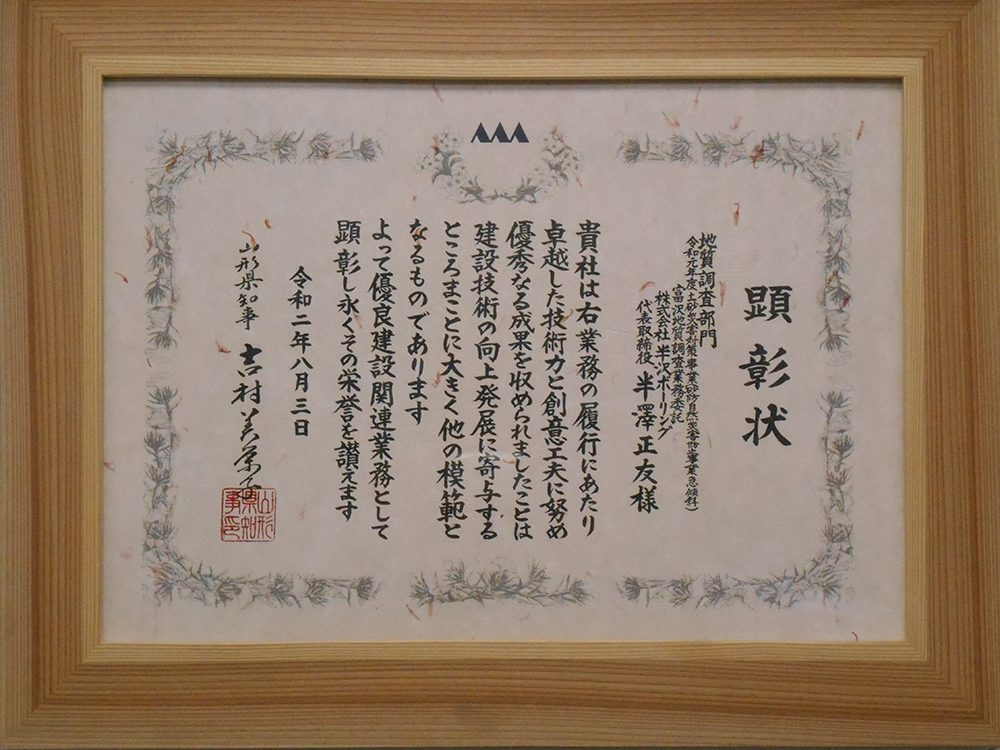 顕彰状
地質調査部門
令和元年度土砂災害対策事業(砂防自然災害防止事業急傾斜)
富沢地質調査業務委託
株式会社 半沢ボーリング
代表取締役 半澤正友様
貴社は右業務の履行にあたり
卓越した技術力と創意工夫に努め
優秀なる成果を収められましたことは
建設技術の向上発展に寄与する
ところまことに大きく他の模範と
なるものであります
よって優良建設関連業務として
顕彰し永くその栄誉を讃えます
令和二年八月三日
山形県知事 吉村美栄子
山形県知事印